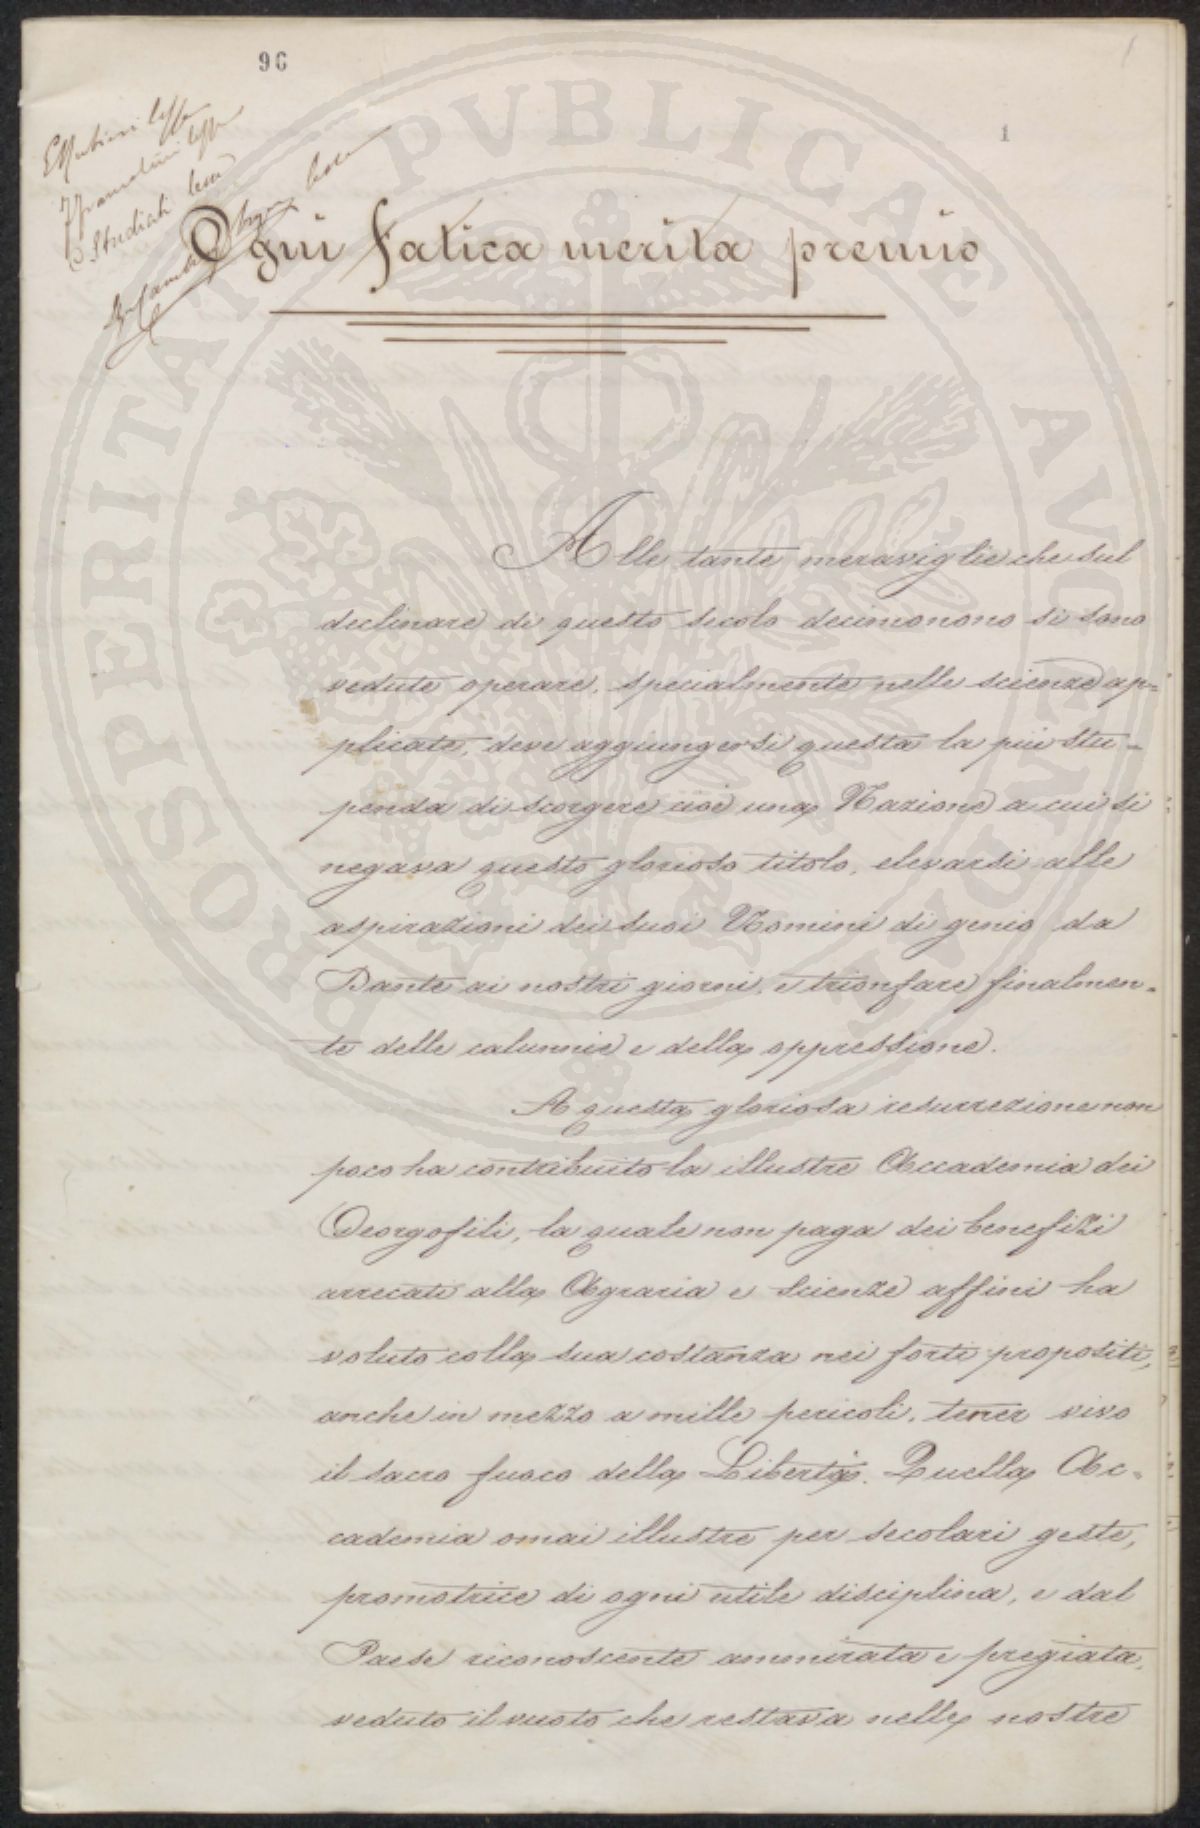 96
1
Ogni fatica merita premio
Alle tante meraviglie che sul
declinare di questo secolo decimonono si sono
vedute operare, specialmente nelle scienze ap=
plicate, deve aggiungersi questa la più stu=
penda di scorgere cioè una Nazione a cui si
negava questo glorioso titolo, elevarsi alle
aspirazioni dei suoi Uomini di genio da
Dante ai nostri giorni, e trionfare finalmen=
te delle calunnie e della oppressione.
A questa gloriosa resurrezione non
poco ha contribuito la illustre Accademia dei
Georgofili, la quale non paga dei benefizi
arrecati alla Agraria e scienze affini ha
voluto colla sua costanza nei forti propositi,
anche in mezzo a mille pericoli, tener vivo
il sacro fuoco della Libertà. Quella Ac=
cademia omai illustre per secolari geste,
promotrice di ogni utile disciplina, e dal
Paese riconoscente ammirata e pregiata,
veduto il vuoto che restava nelle nostre
PROSPERITATI PVBLICAE AVGENDAE